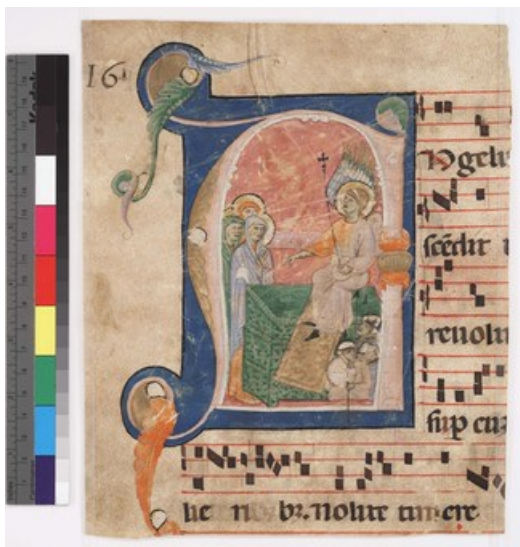 161
Ngelu
scēdit
reuolu
sup eu
lie bʒ. Nolite timere